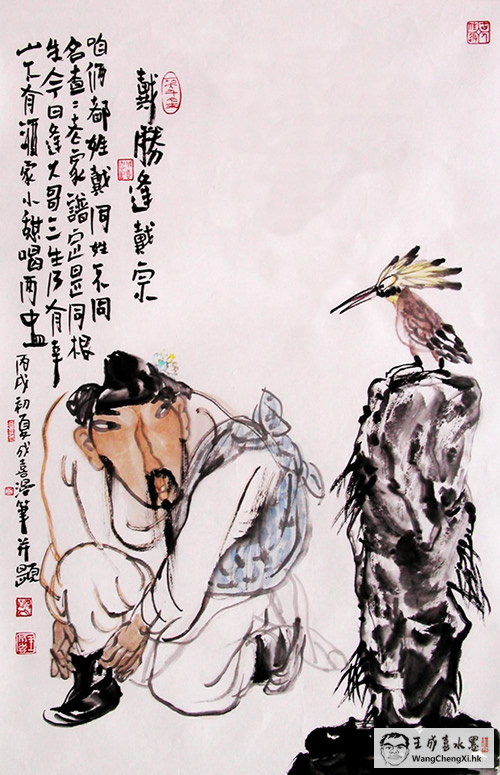 戴勝逢戴宗
咱俩都姓戴同姓不同
名查々老家譜定是同根
生今日逢大哥三生乃有幸
山下有酒家小喝两盅
丙戌初夏成喜潑筆并題
王成喜水墨
WangChengXi.hk